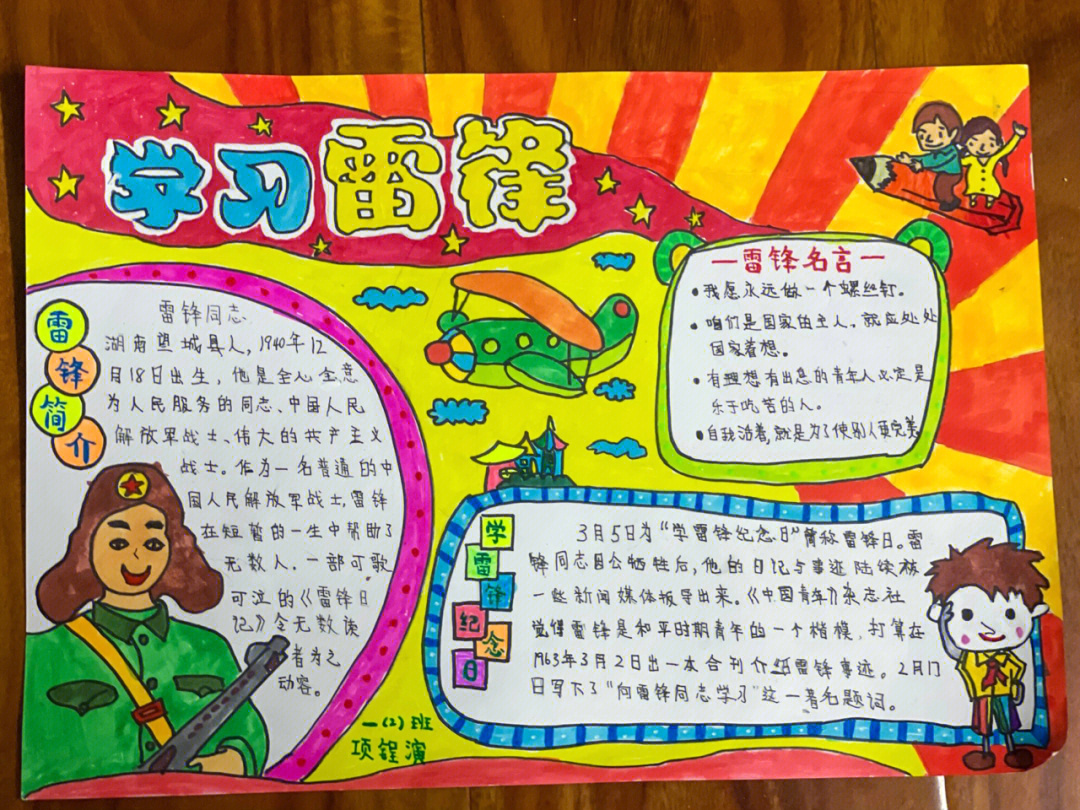 学习雷锋
雷锋简介
雷锋同志
湖南望城县人,1940年12
月18日出生,他是全心全意
为人民服务的同志、中国人民
解放军战士、伟大的共产主义
战士。作为一名普通的中
国人民解放军战士,雷锋
在短暂的一生中帮助了
无数人,一部可歌
可泣的《雷锋日
记》令无数读
者为之
动容。
一雷锋名言一
●我愿永远做一个螺丝钉。
●咱们是国家的主人,就应处处
国家着想。
●有理想有出息的青年人必定是
乐于吃苦的人。
●自我活着,就是为了使别人更完美
学雷锋纪念日
3月5日为“学雷锋纪念日”简称雷锋日。雷
锋同志因公牺牲后,他的日记与事迹陆续被
一些新闻媒体报导出来。《中国青年》杂志社
觉得雷锋是和平时期青年的一个楷模,打算在
1963年3月2日出一本合刊介绍雷锋事迹。2月17
日写下了“向雷锋同志学习”这一著名题词。
一(2)班
项锃演